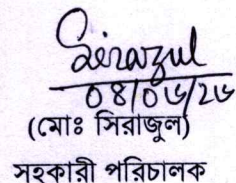 Sirazul
08/06/26
(মোঃ সিরাজুল)
সহকারী পরিচালক